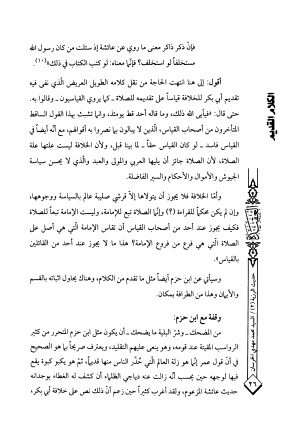 فإنّ ذكر ذاكر معنى ما روي عن عائشة إذ سئلت من كان رسول الله
مستخلفاً لو استخلف؟ فإنّما معناه: لو كتب الكتاب في ذلك»(١٠).
أقول: إلى هنا انتهت الحاجة من نقل كلامه الطويل العريض الّذي نفى فيه
تقديم أبي بكر للخلافة قياساً على تقديمه للصلاة ـ كما يروي القياسيون ـ وقالوا به.
حتى قال: «فيأبى الله ذلك، وما قاله أحد قط يومئذ، وإنما تشبث بهذا القول الساقط
المتأخرون من أصحاب القياس، الّذين لا يبالون بما نصروا به أقوالهم، مع أنّه أيضاً في
القياس فاسد ـ لو كان القياس حقاً ـ لما بينا قبل، ولأن الخلافة ليست علتها علة
الصلاة، لأن الصلاة جائز أن يليها العربي والمولى والعبد والّذي لا يحسن سياسة
الجيوش والأموال والأحكام والسير الفاضلة.
وأمّا الخلافة فلا يجوز أن يتولاها إلاّ قرشي صليبة عالم بالسياسة ووجوهها،
وإن لم يكن محكماً للقراءة (؟) وإنّما الصلاة تبع للإمامة، وليست الإمامة تبعاً للصلاة
فكيف يجوز عند أحد من أصحاب القياس أن تقاس الإمامة الّتي هي أصل على
الصلاة الّتي هي فرع من فروع الإمامة؟ هذا ما لا يجوز عند أحد من القائلين
بالقياس».
وسيأتي عن ابن حزم أيضاً مثل ما تقدم من الكلام، وهناك يحاول اثباته بالقسم
والأيمان وهذا من الطرافة بمكان.
وقفة مع ابن حزم:
من المضحك ـ وشرّ البلية ما يضحك ـ أن يكون مثل ابن حزم المتحرر من كثير
الرواسب المقيتة عند قومه، وهو ينعى عليهم التقليد، ويعترف صريحاً بما هو الصحيح
في أنّ قول عمر إنّما هو زلة العالم الّتي حذّر الناس منها قديماً، ثمّ هو يكبو كبوة يقع
فيها لوجهه حين يحسب أنّه زالت عنه دياجي الظلماء أن كشف له الغطاء بوجدانه
حديث عائشة المزعوم، ولقد أغرب كثيراً حين زعم أنّ ذلك نص على خلافة أبي بكر،
الكلام القديم
٢٦